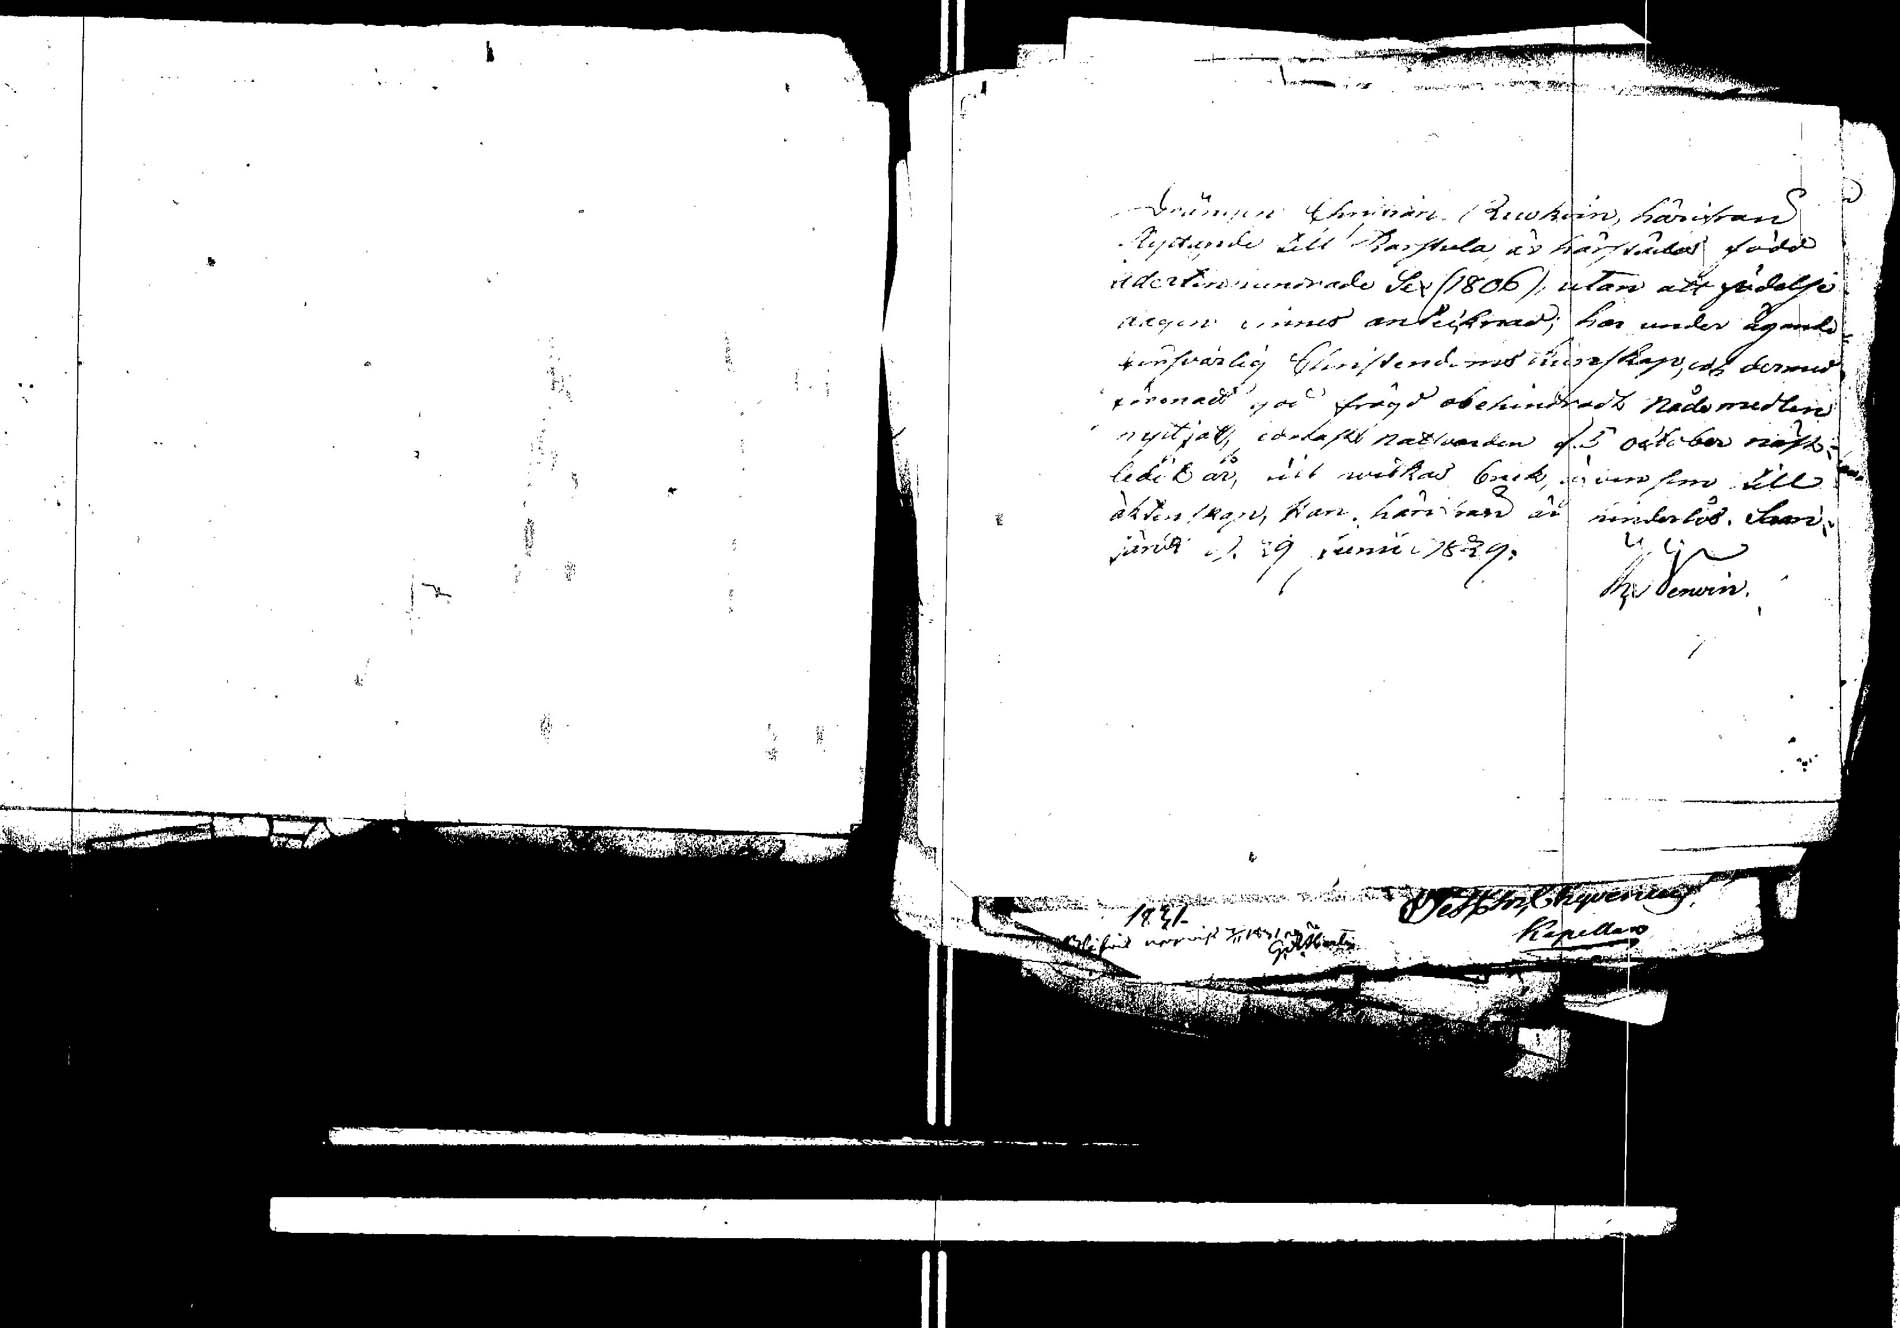 Drängen Christian härifrån
flyttande till Karstula, är härstädes född
adertonhundrade Sex (1806), utan att födelse
dagen finnes antecknad; har under ägande
försvarlig Christendoms kunskap, och dermed
förenad god frägd obehindradt Nådemedlen
nyttjat, senast nattvarden d. 5 october näst-
ledit år, till wilkas bruk, äfven som till
äktenskap, han härifrån är hinderlös. Saari-
järvi d. 29 Junii 1829.
1831.
Kapellan